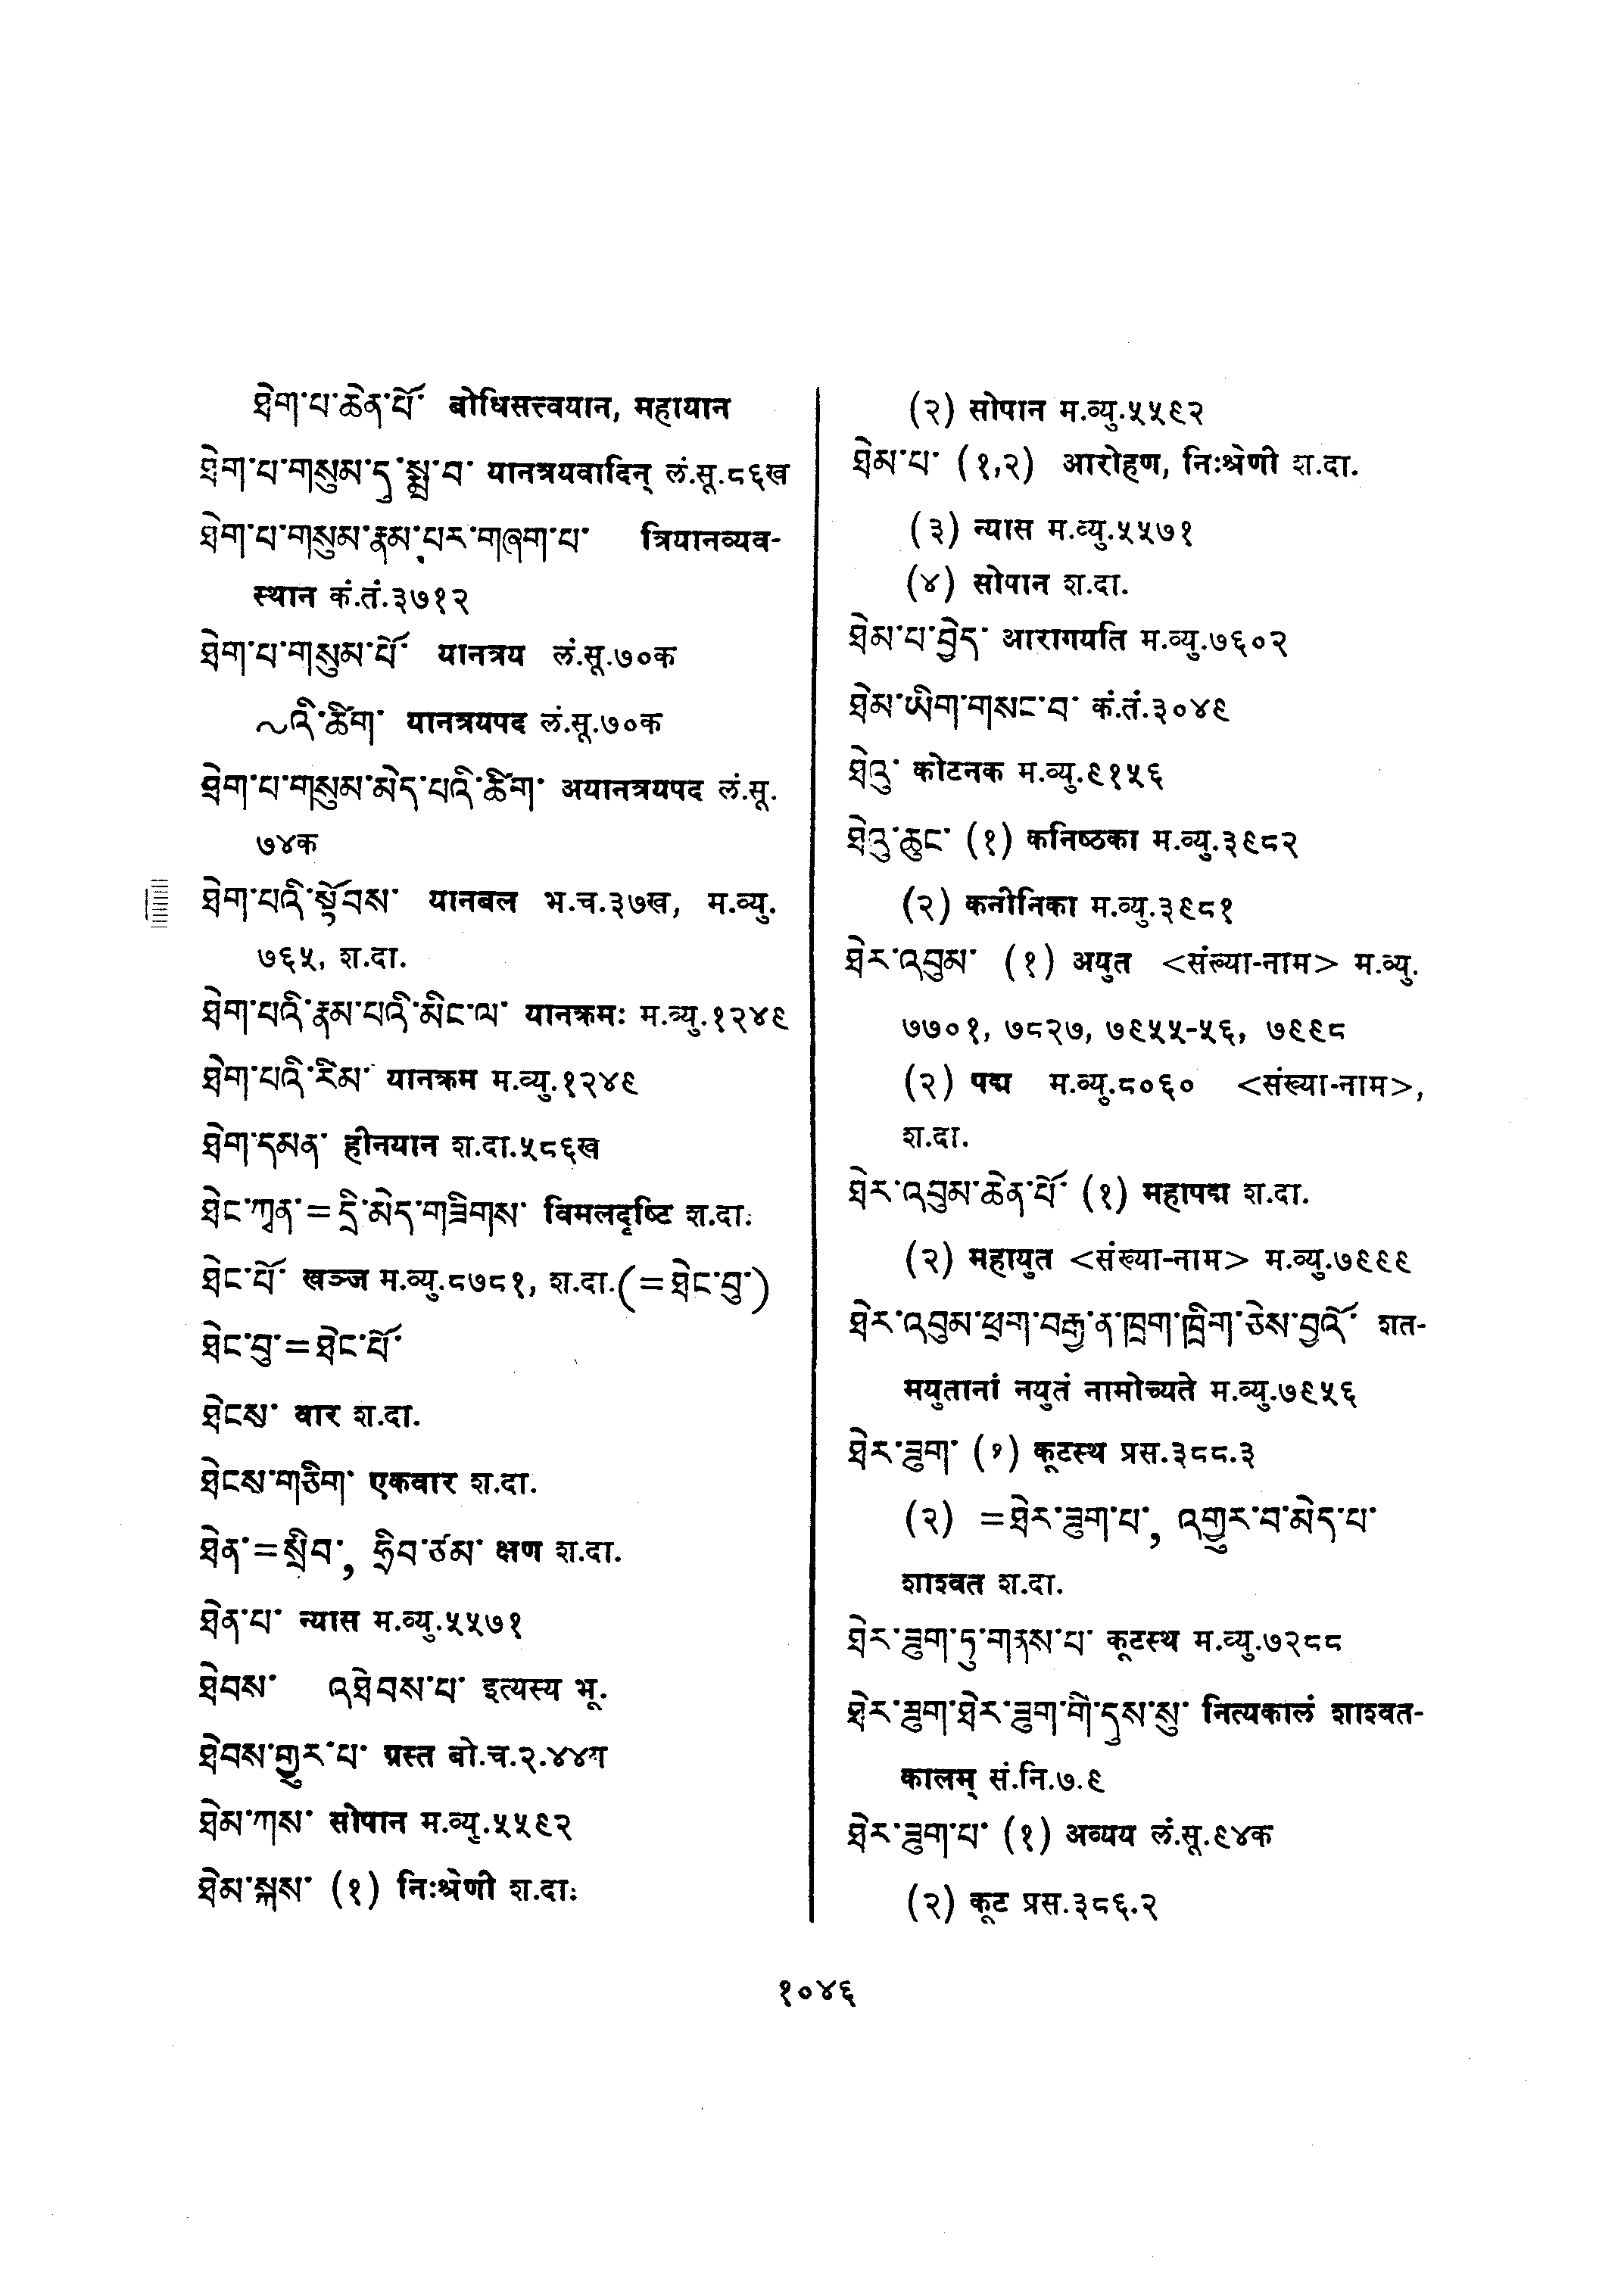 ཐེག་པ་ཆེན་པོ་ बोधिसत्त्वयान, महायान
ཐེག་པ་གསུམ་དུ་སྨྲ་བ་ यानत्रयवादिन् लं.सू.८६ख
ཐེག་པ་གསུམ་རྣམ་པར་གཞག་པ་ त्रियानव्यव-
स्थान कं.तं.३७१२
ཐེག་པ་གསུམ་པོ་ यानत्रय लं.सू.७०क
~འི་ཚིག་ यानत्रयपद लं.सू.७०क
ཐེག་པ་གསུམ་མེད་པའི་ཚིག་ अयानत्रयपद लं.सू.
७४क
ཐེག་པའི་སྟོབས་ यानबल भ.च.३७ख, म.व्यु.
७६५, श.दा.
ཐེག་པའི་རྣམ་པའི་མིང་ལ་ यानक्रमः म.व्यु.१२४९
ཐེག་པའི་རིམ་ यानक्रम म.व्यु.१२४९
ཐེག་དམན་ हीनयान श.दा.५८६ख
ཐེང་ཀྭན་=དྲི་མེད་གཟིགས་ विमलदृष्टि श.दा.
ཐེང་པོ་ खञ्ज म.व्यु.८७८१, श.दा.(=ཐེང་བུ་)
ཐེང་བུ་=ཐེང་པོ་
ཐེངས་ वार श.दा.
ཐེངས་གཅིག་ एकवार श.दा.
ཐེན་=སྲིབ་, ཧྲིབ་ཙམ་ क्षण श.दा.
ཐེན་པ་ न्यास म.व्यु.५५७१
ཐེབས་ འཐེབས་པ་ इत्यस्य भू.
ཐེབས་གྱུར་པ་ ग्रस्त बो.च.२.४४ग
ཐེམ་ཀས་ सोपान म.व्यु.५५९२
ཐེམ་སྐས་ (१) निःश्रेणी श.दा.
(२) सोपान म.व्यु.५५९२
ཐེམ་པ་ (१,२) आरोहण, निःश्रेणी श.दा.
(३) न्यास म.व्यु.५५७१
(४) सोपान श.दा.
ཐེམ་པ་བྱེད་ आरागयति म.व्यु.७६०२
ཐེམ་ཡིག་གསང་བ་ कं.तं.३०४९
ཐེའུ་ कोटनक म.व्यु.९१५६
ཐེའུ་ཆུང་ (१) कनिष्ठका म.व्यु.३९८२
(२) कनीनिका म.व्यु.३९८१
ཐེར་འབུམ་ (१) अयुत <संख्या-नाम> म.व्यु.
७७०१, ७८२७, ७९५५-५६, ७९९८
(२) पद्म म.व्यु.८०६० <संख्या-नाम>,
श.दा.
ཐེར་འབུམ་ཆེན་པོ་ (१) महापद्म श.दा.
(२) महायुत <संख्या-नाम> म.व्यु.७९९९
ཐེར་འབུམ་ཕྲག་བརྒྱ་ན་ཁྲག་ཁྲིག་ཅེས་བྱའོ་ शत-
मयुतानां नयुतं नामोच्यते म.व्यु.७९५६
ཐེར་ཟུག་ (१) कूटस्थ प्रस.३८८.३
(२) =ཐེར་ཟུག་པ་, འགྱུར་བ་མེད་པ་
शाश्वत श.दा.
ཐེར་ཟུག་ཏུ་གནས་པ་ कूटस्थ म.व्यु.७२८८
ཐེར་ཟུག་ཐེར་ཟུག་གི་དུས་སུ་ नित्यकालं शाश्वत-
कालम् सं.नि.७.९
ཐེར་ཟུག་པ་ (१) अव्यय लं.सू.९४क
(२) कूट प्रस.३८६.२
१०४६